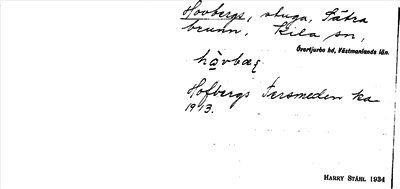 Hovbergs, stuga, Sätra
brunn, Kila sn,
Övertjurbo hd, Västmanlands län.
håvbæ
Hofbergs Tersmeden ka
1913.
HARRY STÅHL 1934